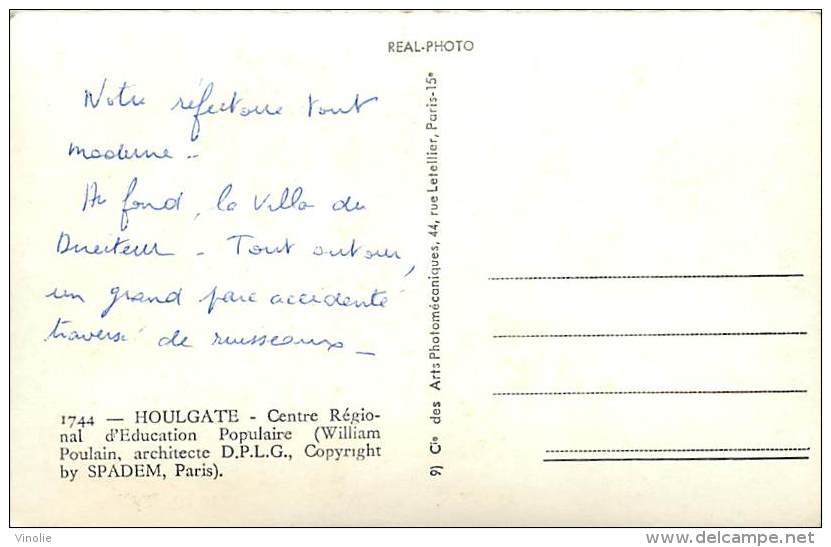 REAL-PHOTO
Notre réfectoire tout
moderne -
Au fond, la villa du
Directeur - Tout autour,
un grand parc accidenté
traversé de ruisseaux -
1744 — HOULGATE - Centre Régio-
nal d'Education Populaire (William
Poulain, architecte D.P.L.G., Copyright
by SPADEM, Paris).
9) Cie des Arts Photomécaniques, 44, rue Letellier, Paris-15e
Vinolie
delcampe.net